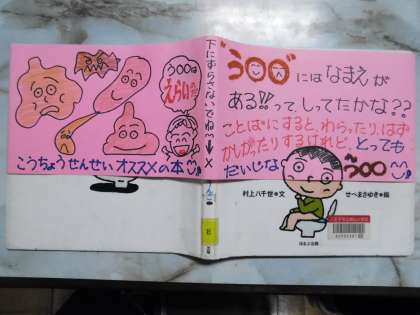 うOOには なまえ が
ある!!って しってたかな??
ことばにすると、わらったり、はず
かしがったりするけれど、とっても
だいじな うOO
村上八千世・文
せべまさゆき・絵
ほるぷ出版
下にずらさないでね
うOOは
えらい
こうちょうせんせい オススメの本